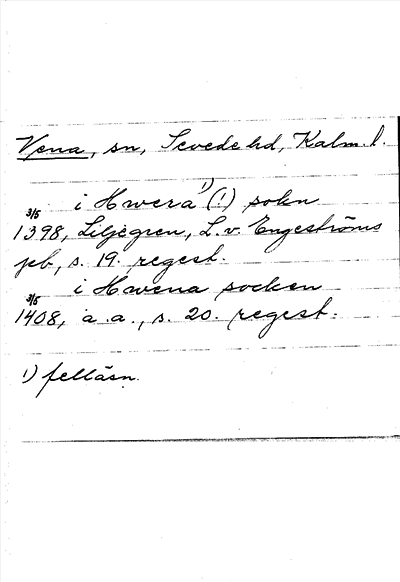 Vena, sn, Sevede hd, Kalm. l.
i Hwera ¹) (!) sokn
3/5
1398, Liljegren, L. v. Engeströms
jeb, s. 19. regest.
i Hwena socken
3/5
1408, a. a., s. 20. regest.
1) felläsn.